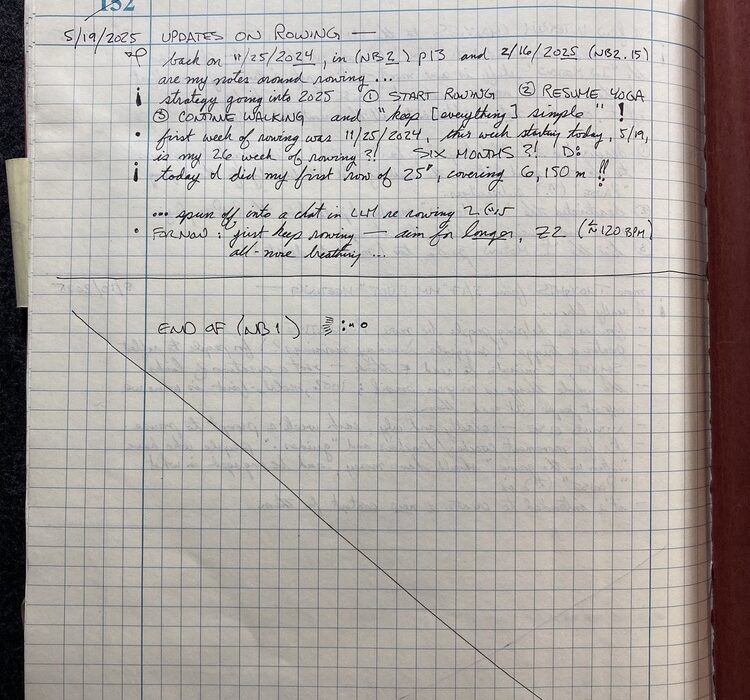 152
5/19/2025 UPDATES ON ROWING —
back on 11/25/2024, in (NB2) p13 and 2/16/2025 (NB2.15)
are my notes around rowing ...
¡ strategy going into 2025 ① START ROWING ② RESUME YOGA
③ CONTINUE WALKING and "keep [everything] simple" !
• first week of rowing was 11/25/2024, this week starting today, 5/19,
is my 26 week of rowing?! SIX MONTHS ?! D:
¡ today I did my first row of 25", covering 6,150 m !!
... spun off into a chat in LLM re rowing
• FOR NOW: just keep rowing — aim for longer, Z2 (~120 BPM)
all-nose breathing ...
END OF (NB1)